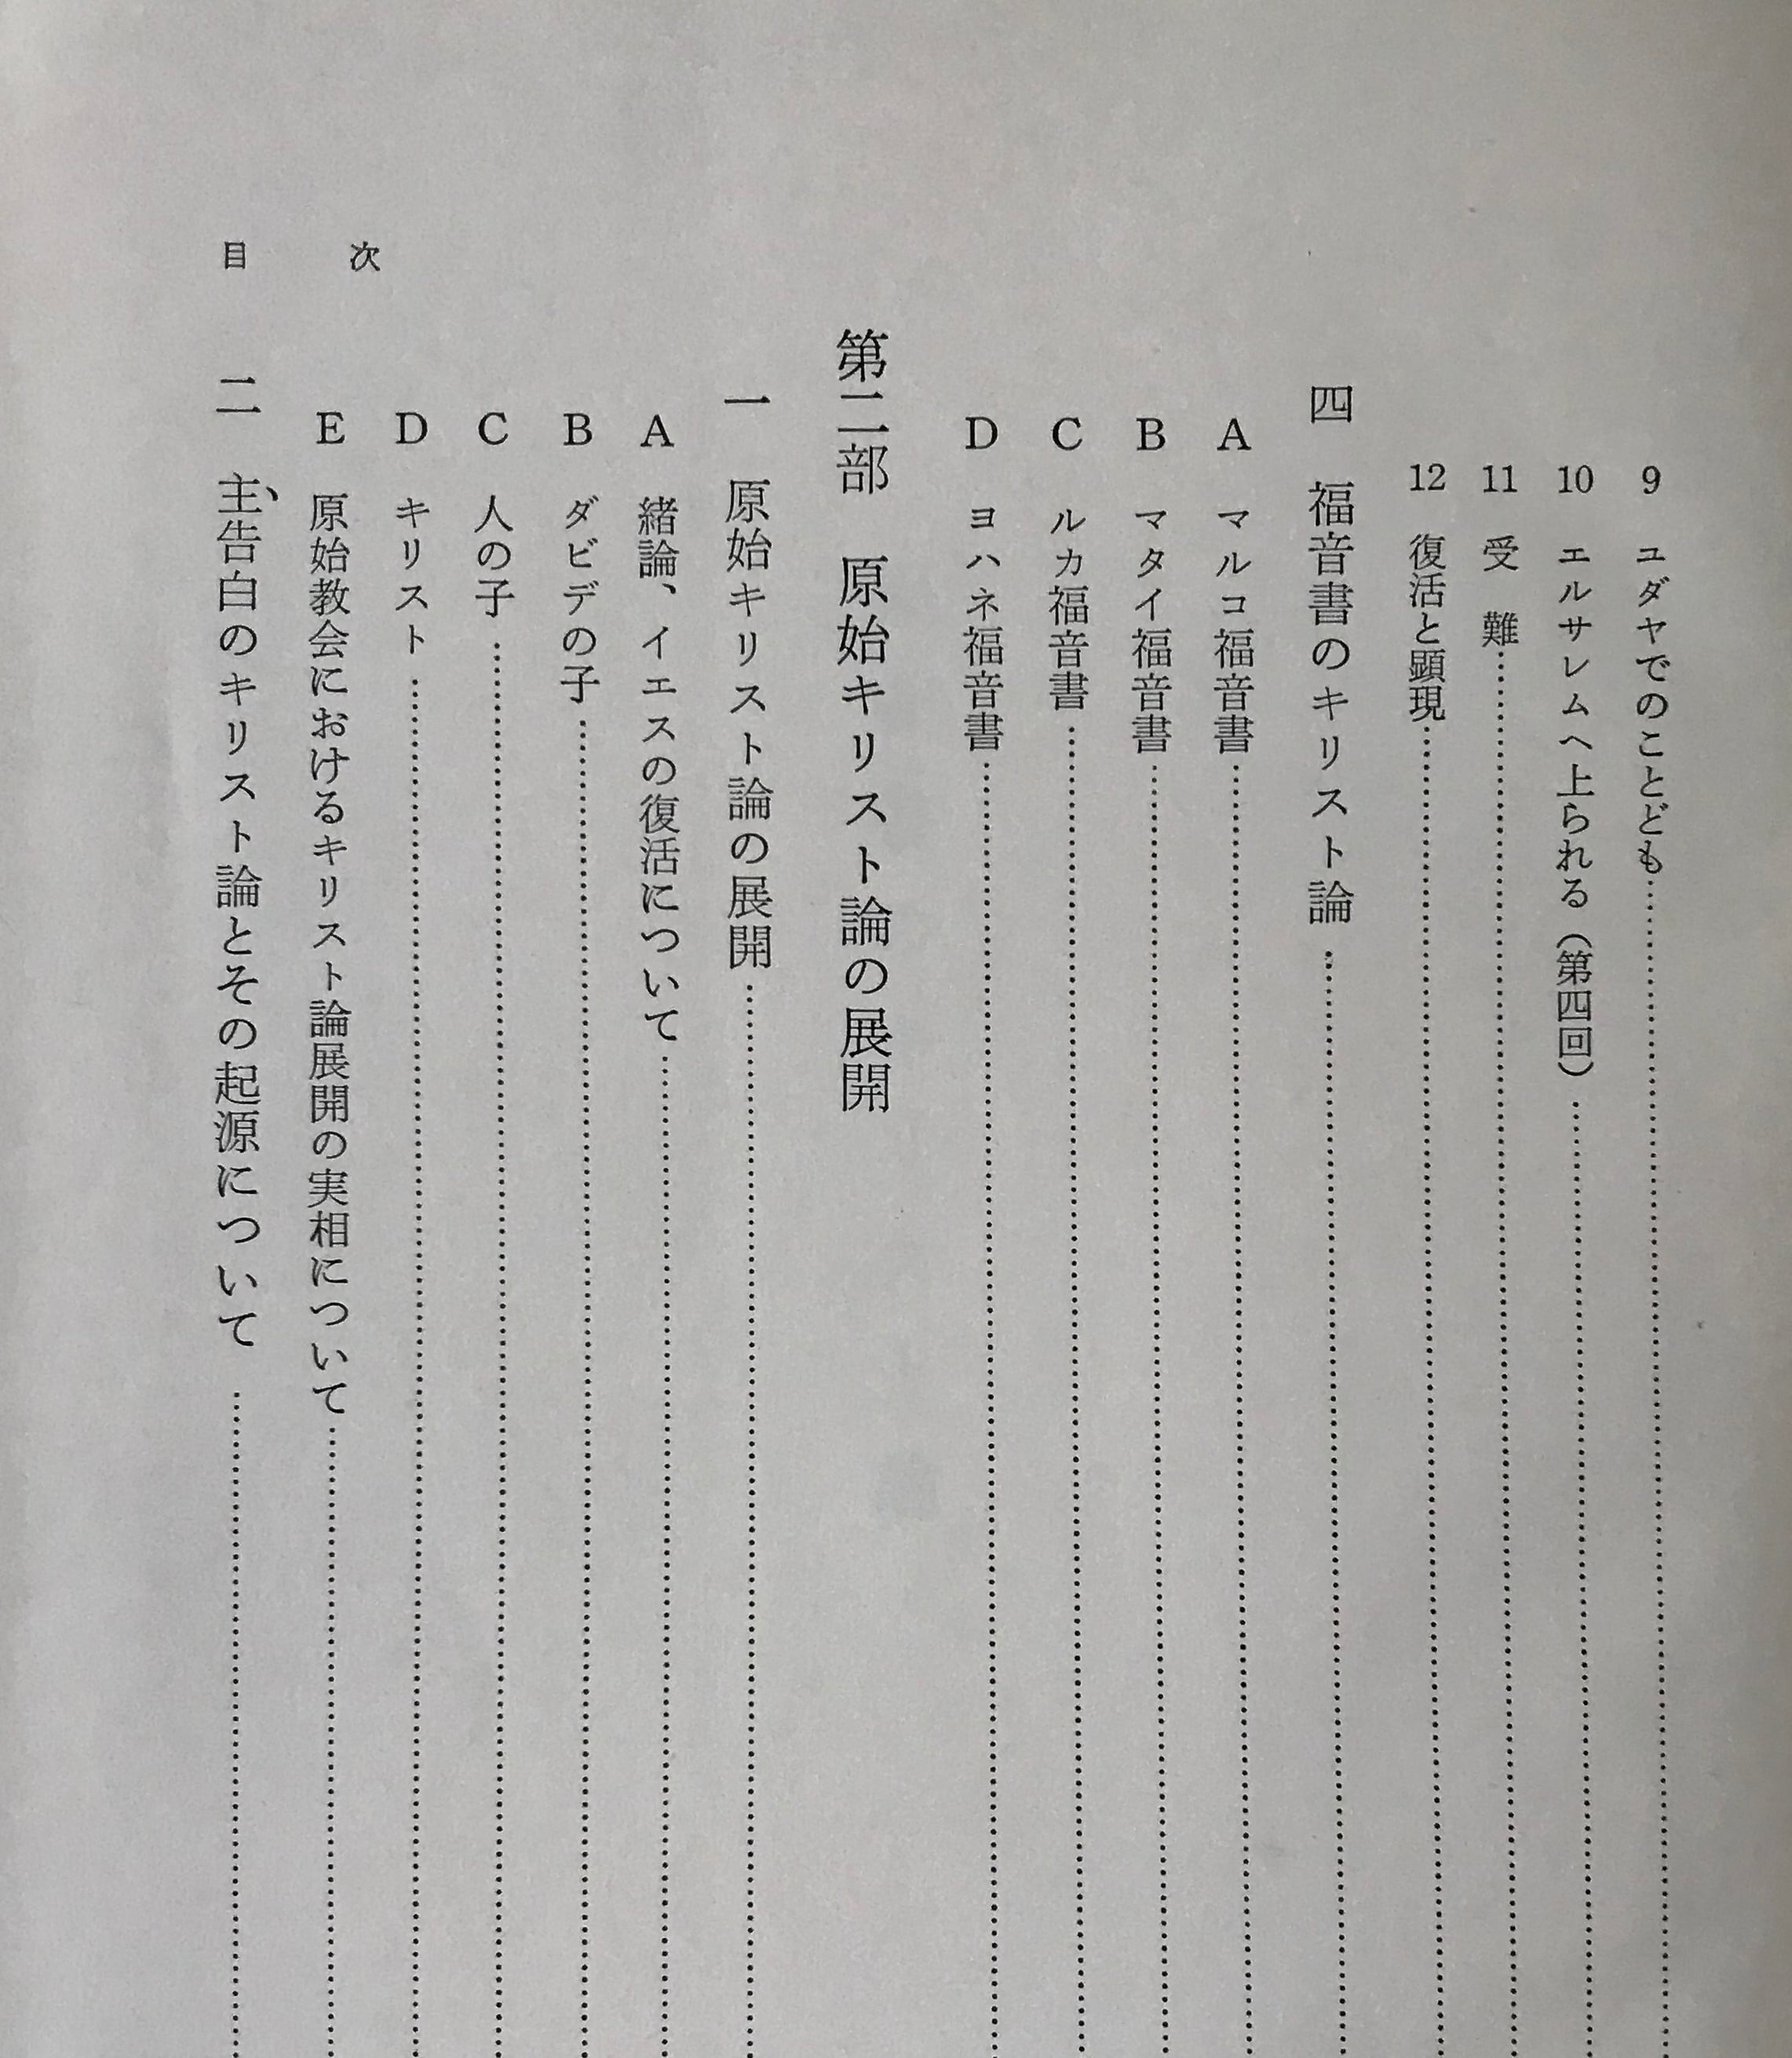 9 ユダヤでのことども
10 エルサレムへ上られる（第四回）
11 受 難
12 復活と顕現
四 福音書のキリスト論
A マルコ福音書
B マタイ福音書
C ルカ福音書
D ヨハネ福音書
第二部 原始キリスト論の展開
一 原始キリスト論の展開
A 緒論、イエスの復活について
B ダビデの子
C 人の子
D キリスト
E 原始教会におけるキリスト論展開の実相について
二 主告白のキリスト論とその起源について
目 次